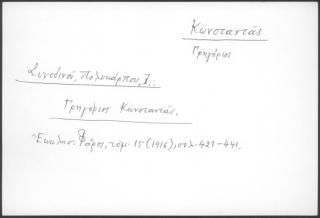 Κωνσταντάς
Γρηγόριος
Συνοδινού, Πολυκάρπου, Ι.:
Γρηγόριος Κωνσταντάς.
Ἐκκλησ. Φάρος, τόμ. 15 (1916), σελ. 421-441.